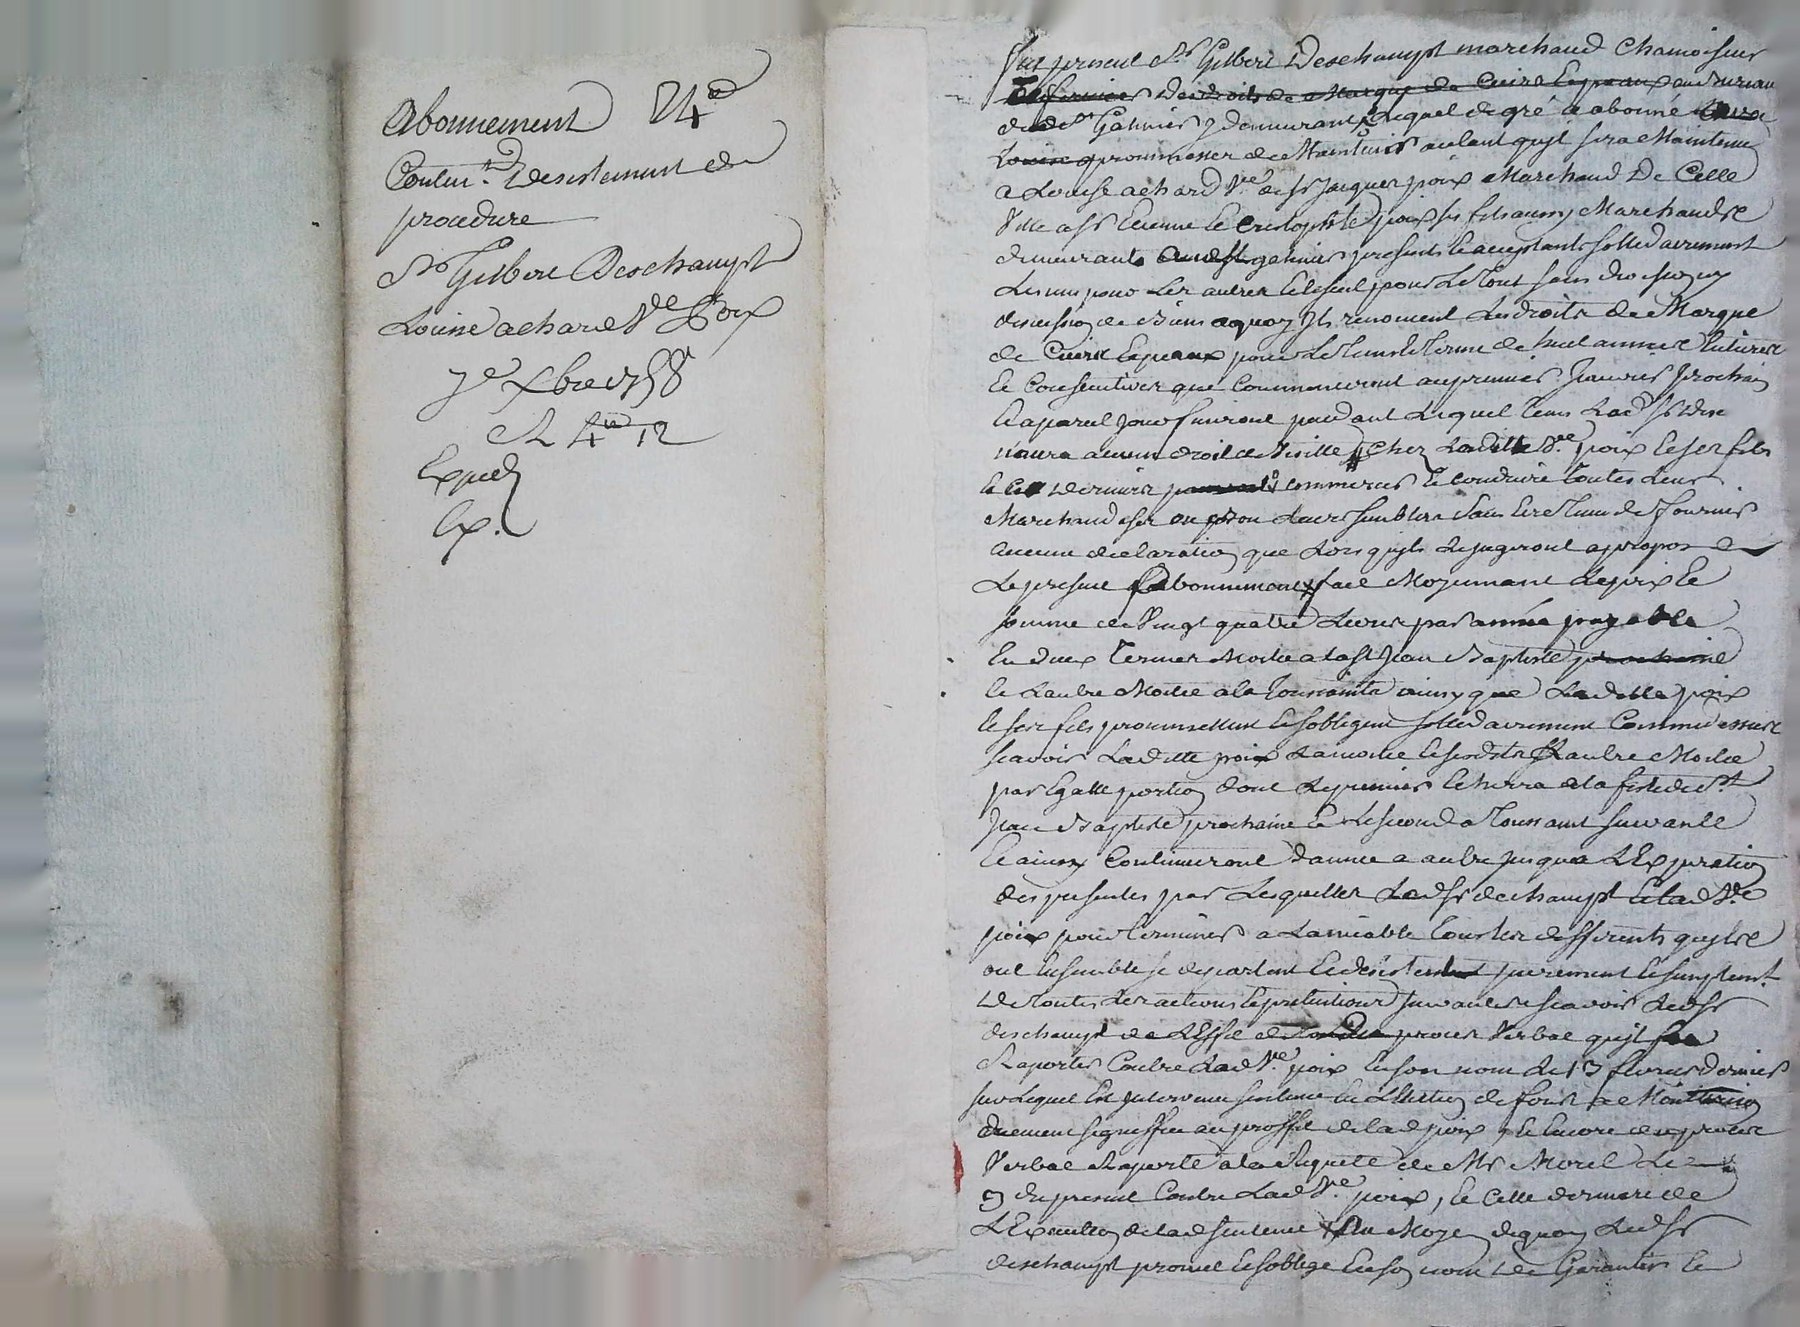 Abonnement 24ᵗᵗ
Conten.ᵗ Desistement de
procedure
Sʳ Gilbert Deschampt
Louise achard Vᵛᵉ Poix
7ᵉ Xbre 1758
R 4ᵗᵗ 12
Exped
Ex.
Fut present Sʳ Gilbert Deschampt marchand chamoiseur
des droits de Marque de Cuirs Et peaux au Bureau
de Sᵗ Galmier y demeurant, Lequel de gré a abonné
promesser de Maintenir autant quyl sera Maintenu
a Louise achard Vᵛᵉ de Sʳ Jacques poix Marchand De Celle
Ville a Sʳ Etienne Et Cristophle poix ses fils aussy Marchands
demeurants audit Sᵗ galmier presents Et acceptants sollidairement
Les uns pour Les autres Et le seul pour Le Tout sans division ny
discussion de Biens a quoy Ils renoncent Les droits de Marque
de Cuirs Et peaux pour Le Tems Et Terme de huit années
Et Consecutives que Commenceront au premier Janvier prochain
Et a pareil jour finiront pendant Lequel Tems Led Sʳ
n'aura aucun droit de Visitte Chez Laditte Vᵛᵉ poix Et ses fils
Et Ces Derniers commercer Et conduire toutes Leurs
Marchandises ou bon Leurs semblera Sans Etre Tenu de fournir
aucune declaration que Lors quyls Le jugeront a propos
Le present abonnement fait Moyennant Le prix Et
somme de Vingt quatre Livres par année payable
En deux Termes Moitie a la Sᵗ Jean Baptiste
Et Lautre Moitie a la Toussaints ainsy que Laditte poix
Et ses fils promettent Et sobligent sollidairement Comme dessus
scavoir Laditte poix La moitie Et sesdits fils Lautre Moitie
par Egalle portion dont Le premier Echerra a la feste de Sᵗ
Jean Baptiste prochaine Et Le second a Toussaint suivante
Et ainsy Continueront dannée a autre jusqua LExpiration
des presentes par Lesquelles Led Sʳ deschampt Et lad Vᵛᵉ
poix pour Terminer a Lamiable Tous Les differents quyls
ont Ensemble se departent Et desistent purement Et simplemᵗ
De Toutes Les actions Et pretentions suivantes scavoir Led Sʳ
deschampt de LEffet du procès Verbal quyl
Raporter Contre Lad Vᵛᵉ poix En son nom Le 13 fevrier dernier
sur Lequel Est Intervenu sentence En LElection de forest a Montbrison
duement signiffié au proffit de lad poix, Et Encore du procès
Verbal Raporté a la Requete de Mʳ Morel Le
9 du present Contre Lad Vᵛᵉ poix, Et Cette derniere de
LExecution de lad sentence Au Moyen de quoy Led Sʳ
deschampt promet Et soblige En son nom de Garantir Et